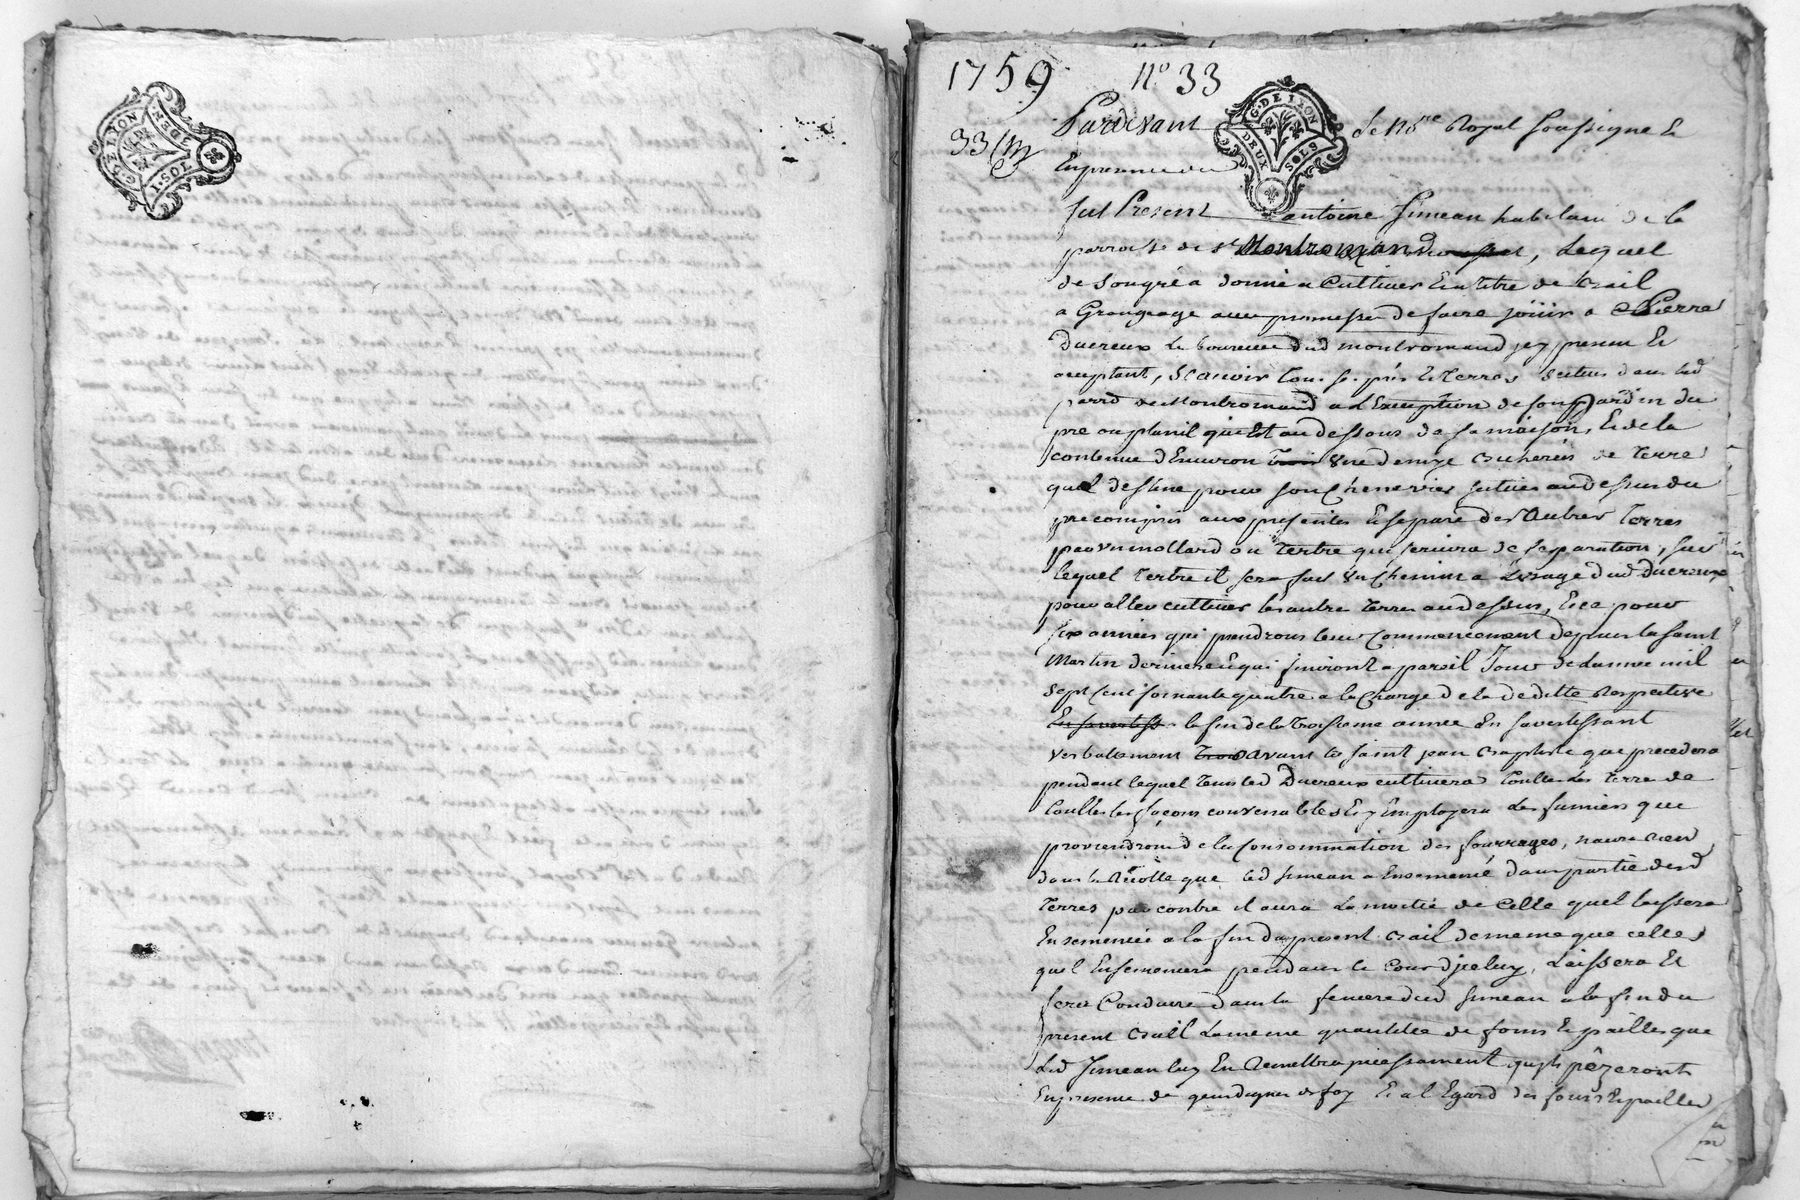 G. DE LYON
DEUX SOLS
1759 N° 33
33
Pardevant le No.re Royal soussigné Et
En presence des
fut Present antoine Simean habitant de la
parroisse de st Montromand, Lequel
de son gré a donné a Cultiver En titre de Bail
a Grangeage avec promesse de faire jöuir a Pierre
Ducreux Laboureur dud montromand jcy present Et
acceptant, Scavoir tous ses prés Et terres scitues dans lad
parr. de Montromand a L'Exception de son Jardin du
pré ou planil qui Est au dessous de sa maison, Et de la
contenue d'Environ une demye Bicherée de terre
quil destine pour son Chenevier scitué au dessus du
pré compris aux presentes Et separé des Autres terres
par un mollard ou tertre qui servira de separation, sur
lequel tertre il sera fait un Chemin a L'usage dud Ducreux
pour aller cultiver les autre terres au dessus, Et ce pour
six années qui prendront leur Commencement depuis la saint
Martin derniere Et qui finiront a pareil Jour de l'année mil
sept Cent soixante quatre a la Charge de la deditte Respective
En s'avertiss a la fin de la troisieme année En s'avertissant
verbalement avant la saint jean Baptiste que precedera
pendant lequel tems led Ducreux cultivera touttes les terres de
touttes les façons convenables Et y Employera Les fumiers que
proviendront de la Consommation des fourrages, n'aura Rien
dans la Récolte que led Simean a Ensemencé dans partie desd
terres par contre il aura La moitié de Celle quil laissera
Ensemencée a la fin du present Bail de meme que celles
quil Ensemencera pendant le Cours d'jceluy, Laissera Et
fera Conduire dans la feniere dud Simean a la fin du
present Bail La meme quantitée de foins Et pailles que
Led Simean luy En Remettra jncessament quils pêzeront
En presence de gens dignes de foy Et a l'Egard des foins Et pailles